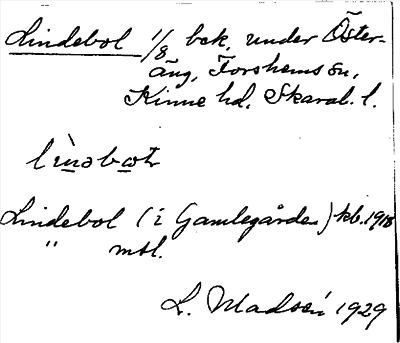 Lindebol 1/8 bek. under Öster-
äng, Forshems sn,
Kinne hd, Skarab. l.
Lindebol (i Gamlegården) kb. 1918
" mtl.
L. Madsén 1929